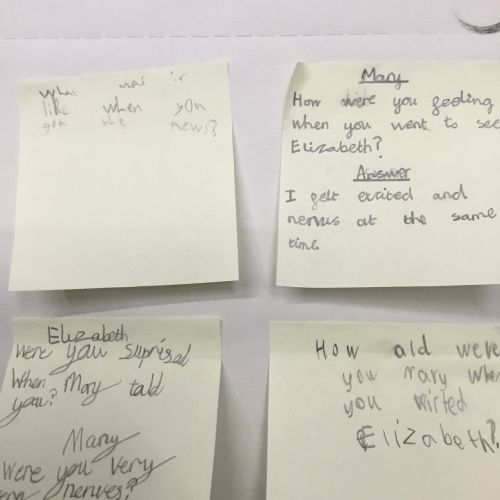 What was it
like when you
got the news?
Mary
How were you feeling
when you went to see
Elizabeth?
Answer
I felt excited and
nervus at the same
time
Elizabeth
Were you suprised
When Mary told
you?
Many
Were you very
nerves?
How old were
you Mary when
you visited
Elizabeth?